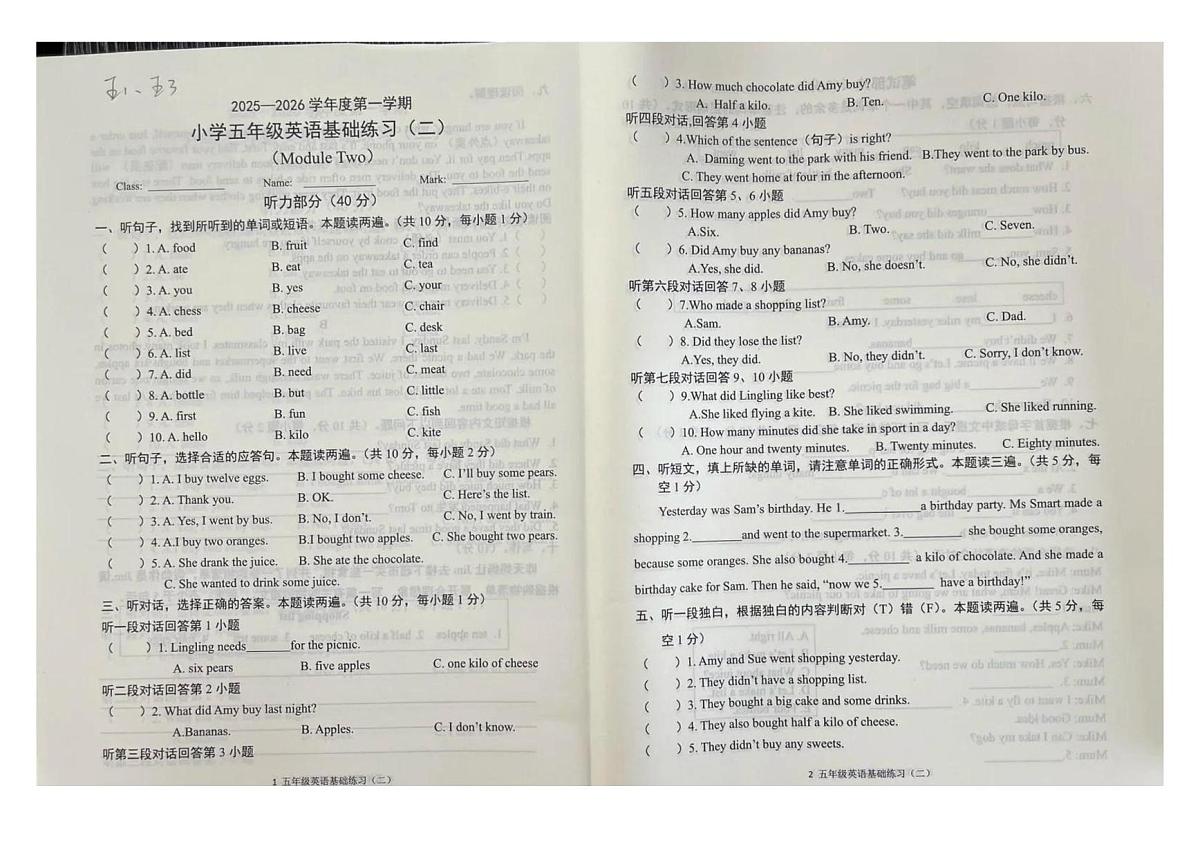 五1、五3
2025—2026 学年度第一学期
小学五年级英语基础练习（二）
（Module Two）
Class: ____________ Name: ____________ Mark: ________
听力部分（40 分）
一、听句子，找到所听到的单词或短语。本题读两遍。（共 10 分，每小题 1 分）
( ) 1. A. food B. fruit C. find
( ) 2. A. ate B. eat C. tea
( ) 3. A. you B. yes C. your
( ) 4. A. chess B. cheese C. chair
( ) 5. A. bed B. bag C. desk
( ) 6. A. list B. live C. last
( ) 7. A. did B. need C. meat
( ) 8. A. bottle B. but C. little
( ) 9. A. first B. fun C. fish
( ) 10. A. hello B. kilo C. kite
二、听句子，选择合适的应答句。本题读两遍。（共 10 分，每小题 2 分）
( ) 1. A. I buy twelve eggs. B. I bought some cheese. C. I'll buy some pears.
( ) 2. A. Thank you. B. OK. C. Here's the list.
( ) 3. A. Yes, I went by bus. B. No, I don't. C. No, I went by train.
( ) 4. A.I buy two oranges. B.I bought two apples. C. She bought two pears.
( ) 5. A. She drank the juice. B. She ate the chocolate.
C. She wanted to drink some juice.
三、听对话，选择正确的答案。本题读两遍。（共 10 分，每小题 1 分）
听一段对话回答第 1 小题
( ) 1. Lingling needs_______for the picnic.
A. six pears B. five apples C. one kilo of cheese
听二段对话回答第 2 小题
( ) 2. What did Amy buy last night?
A.Bananas. B. Apples. C. I don't know.
听第三段对话回答第 3 小题
1 五年级英语基础练习（二）
( ) 3. How much chocolate did Amy buy?
A. Half a kilo. B. Ten. C. One kilo.
听四段对话,回答第 4 小题
( ) 4.Which of the sentence（句子）is right?
A. Daming went to the park with his friend. B.They went to the park by bus.
C. They went home at four in the afternoon.
听五段对话回答第 5、6 小题
( ) 5. How many apples did Amy buy?
A.Six. B. Two. C. Seven.
( ) 6. Did Amy buy any bananas?
A.Yes, she did. B. No, she doesn't. C. No, she didn't.
听第六段对话回答 7、8 小题
( ) 7.Who made a shopping list?
A.Sam. B. Amy. C. Dad.
( ) 8. Did they lose the list?
A.Yes, they did. B. No, they didn't. C. Sorry, I don't know.
听第七段对话回答 9、10 小题
( ) 9.What did Lingling like best?
A.She liked flying a kite. B. She liked swimming. C. She liked running.
( ) 10. How many minutes did she take in sport in a day?
A. One hour and twenty minutes. B. Twenty minutes. C. Eighty minutes.
四、听短文，填上所缺的单词，请注意单词的正确形式。本题读三遍。（共 5 分，每
空 1 分）
Yesterday was Sam's birthday. He 1.____________a birthday party. Ms Smart made a
shopping 2.________and went to the supermarket. 3.__________ she bought some oranges,
because some oranges. She also bought 4.__________ a kilo of chocolate. And she made a
birthday cake for Sam. Then he said, “now we 5.________ have a birthday!”
五、听一段独白，根据独白的内容判断对（T）错（F）。本题读两遍。（共 5 分，每
空 1 分）
( ) 1. Amy and Sue went shopping yesterday.
( ) 2. They didn't have a shopping list.
( ) 3. They bought a big cake and some drinks.
( ) 4. They also bought half a kilo of cheese.
( ) 5. They didn't buy any sweets.
2 五年级英语基础练习（二）